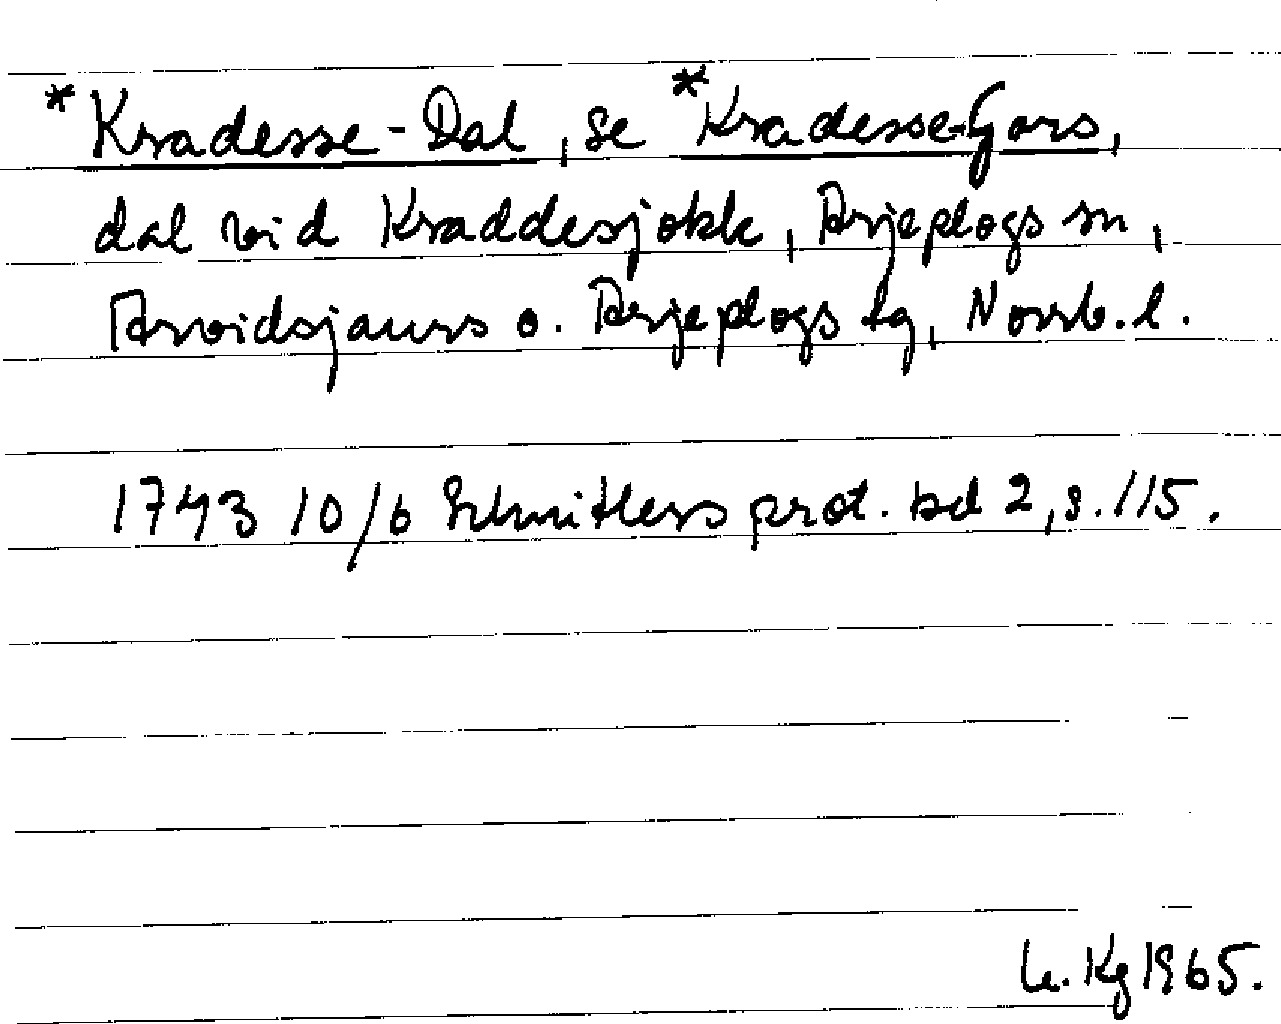 *Kradesse-Dal, se *Kradesse-Gors,
dal vid Kraddesjokk, Arjeplogs sn,
Arvidsjaurs o. Arjeplogs tg, Norrb. l.
1743 10/6 Schnitlers prot. bd 2, s. 115.
Kg 1965.